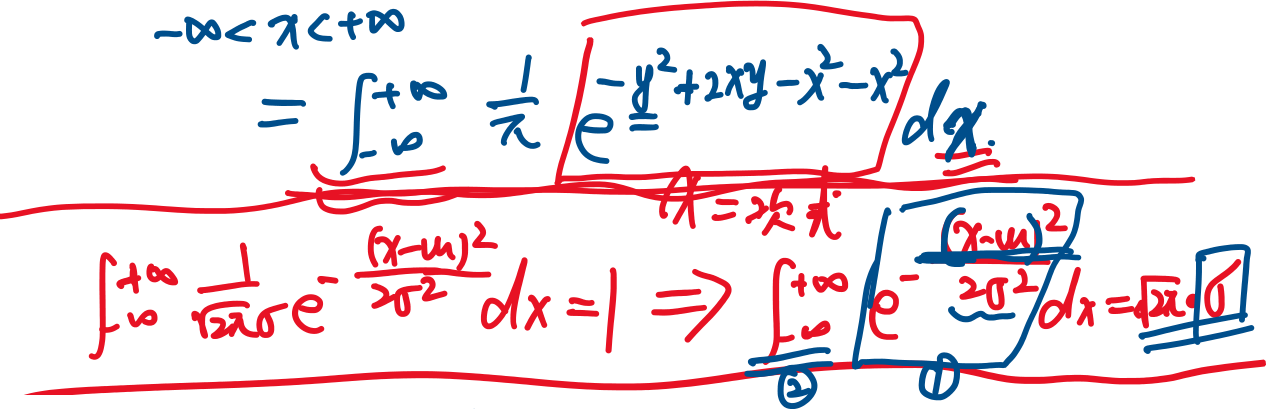 -∞<x<+∞
= ∫_{-∞}^{+∞} 1/π e^{-y²+2xy-x²-x²} dx.
∫_{-∞}^{+∞} 1/(√2π σ) e^{-(x-μ)²/2σ²} dx = 1 ⇒ ∫_{-∞}^{+∞} e^{-(x-μ)²/2σ²} dx = √2π·σ
② ①